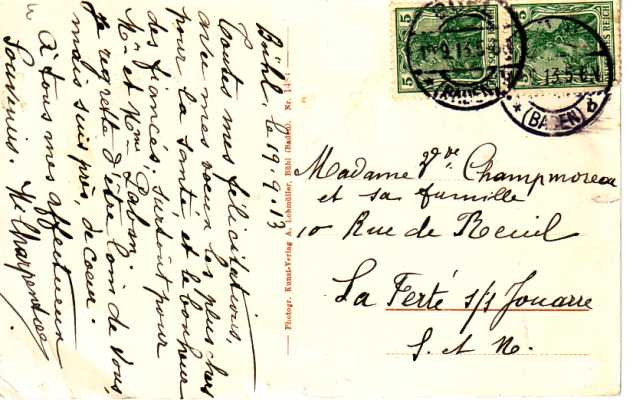 Bühl, le 19.9.13
Toutes mes félicitations,
avec mes voeux les plus chers
pour la santé et le bonheur
des fiancés. Surtout pour
Mr et Mme
Je regrette d'être loin de vous,
mais suis près, de coeur.
à tous mes affectueux
Souvenirs. Charpentier
Photogr. Kunst-Verlag A. Lohmüller, Bühl (Baden). Nr.
5 5
5 5
REICH
(BADEN)
* (BADEN) b
Madame Vve Champmoreau
et sa famille
10 Rue de Reuil
La Ferté s/s Jouarre
S. et M.